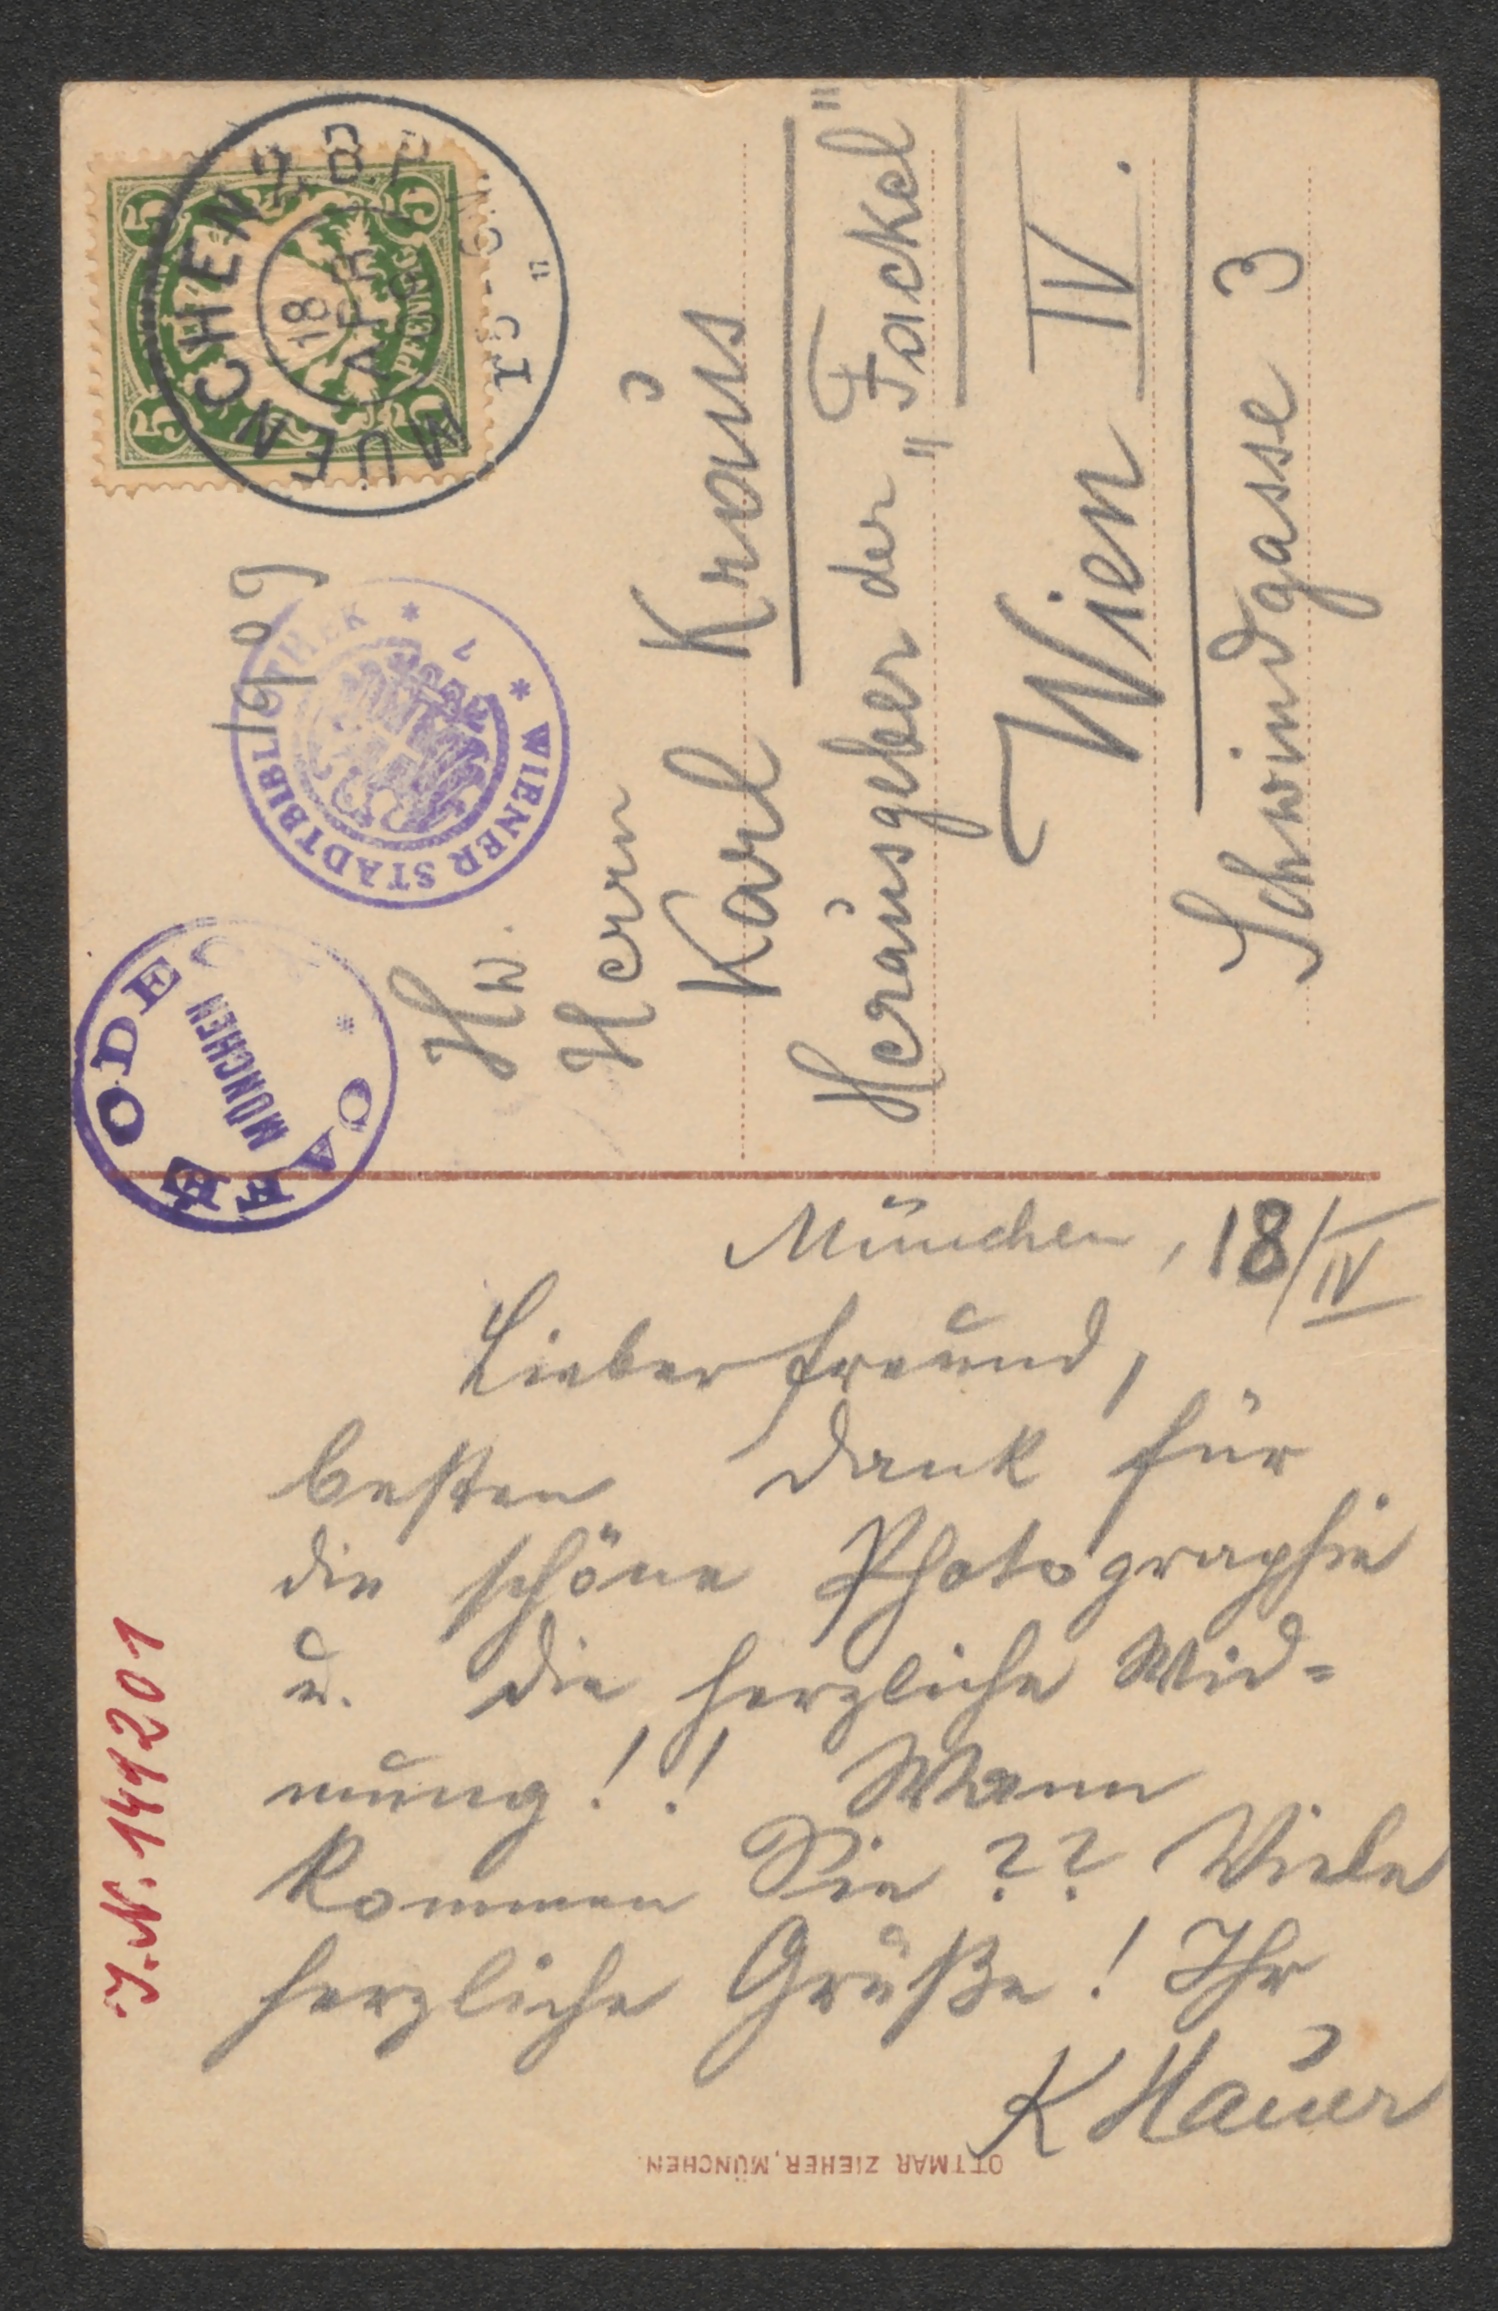 5
5
5
5
PFENNIG
MUENCHEN 2. B.P.
18
APR
1909
WIENER STADTBIBLIOTHEK
CAFÉ ODEON
MÜNCHEN
Hw.
Herrn
Karl Kraus
Herausgeber der „Fackel"
Wien IV.
Schwindgasse 3
München, 18/IV
Lieber Freund,
besten Dank für
die schöne Photographie
u. die herzliche Wid-
mung!! Wann
kommen Sie?? Viele
herzliche Grüße! Ihr
K Hauer
J.N. 144201
OTTMAR ZIEHER, MÜNCHEN.